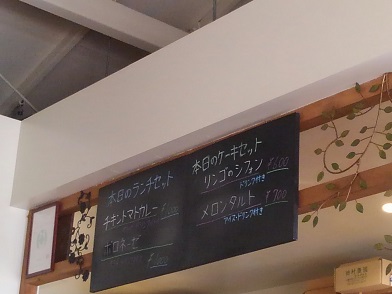 本日のランチセット
チキントマトカレー
ボロネーゼ
本日のケーキセット
リンゴのシフォン ¥600
ドリンク付き
メロンタルト ¥700
アイス・ドリンク付き